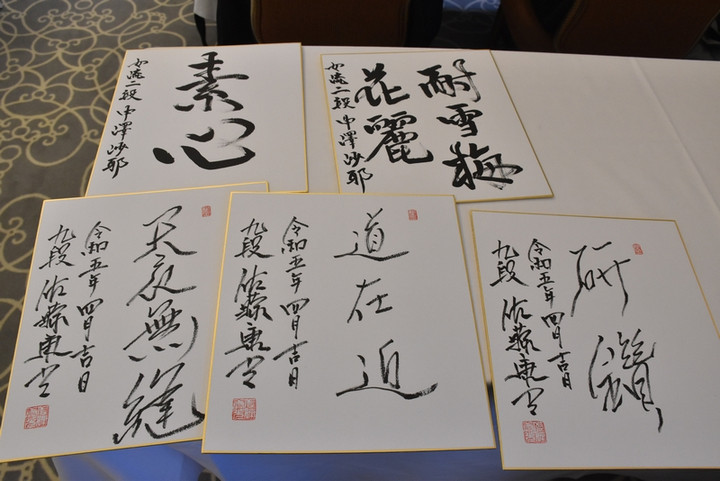 素心
女流二段 中澤沙耶
耐雪梅
花麗
女流二段 中澤沙耶
天衣無縫
令和五年 四月吉日
九段 佐藤康光
道在近
令和五年 四月吉日
九段 佐藤康光
研鑽
令和五年 四月吉日
九段 佐藤康光